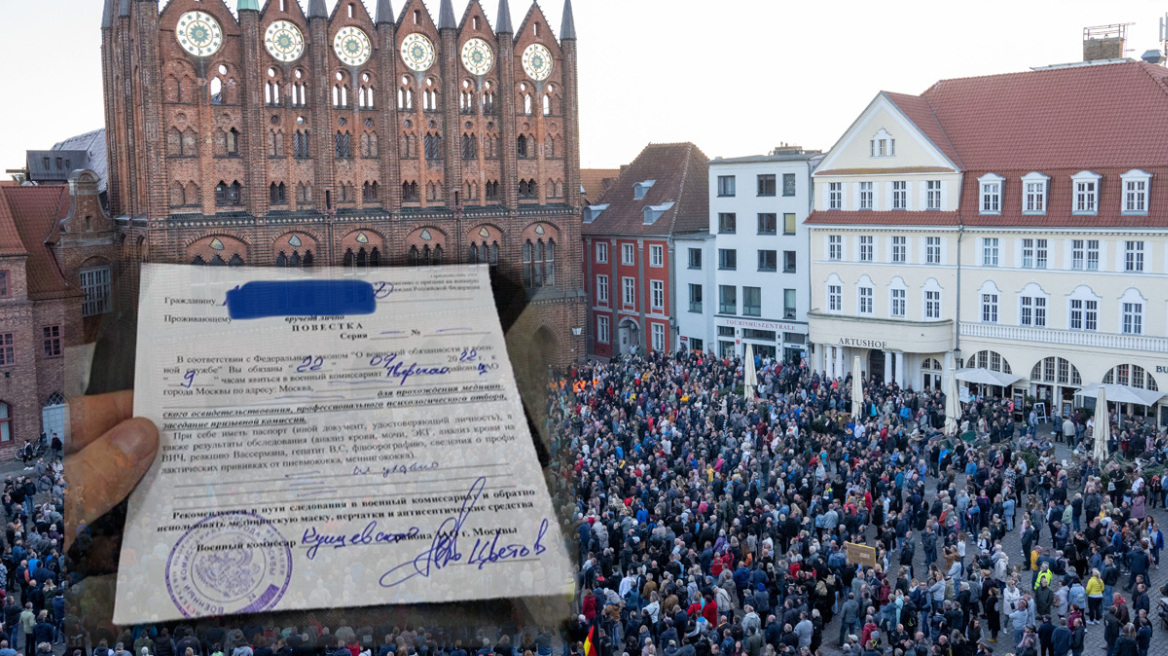 Гражданину
Российской Федерации
Проживающему
вручено лично
ПОВЕСТКА
Серия №
В соответствии с Федеральным законом "О воинской обязанности и воен-
ной службе" Вы обязаны " 22 " 09 20 22 г. к
" 9 " часам явиться в военный комиссариат Тверского района ЦАО
города Москвы по адресу: г. Москва,
для прохождения медицин-
ского освидетельствования, профессионального психологического отбора,
заседание призывной комиссии.
При себе иметь паспорт (иной документ, удостоверяющий личность), а
также результаты обследования (анализ крови, мочи, ЭКГ, анализ крови на
ВИЧ, реакцию Вассермана, гепатит В,С, флюорографию, сведения о профи-
лактических прививках от пневмококка, менингококка).
Рекомендуется в пути следования в военный комиссариат и обратно
использовать медицинскую маску, перчатки и антисептические средства
Военный комиссар района г. Москвы
Цветов
TOURISMUSZENTRALE
ARTUSHOF